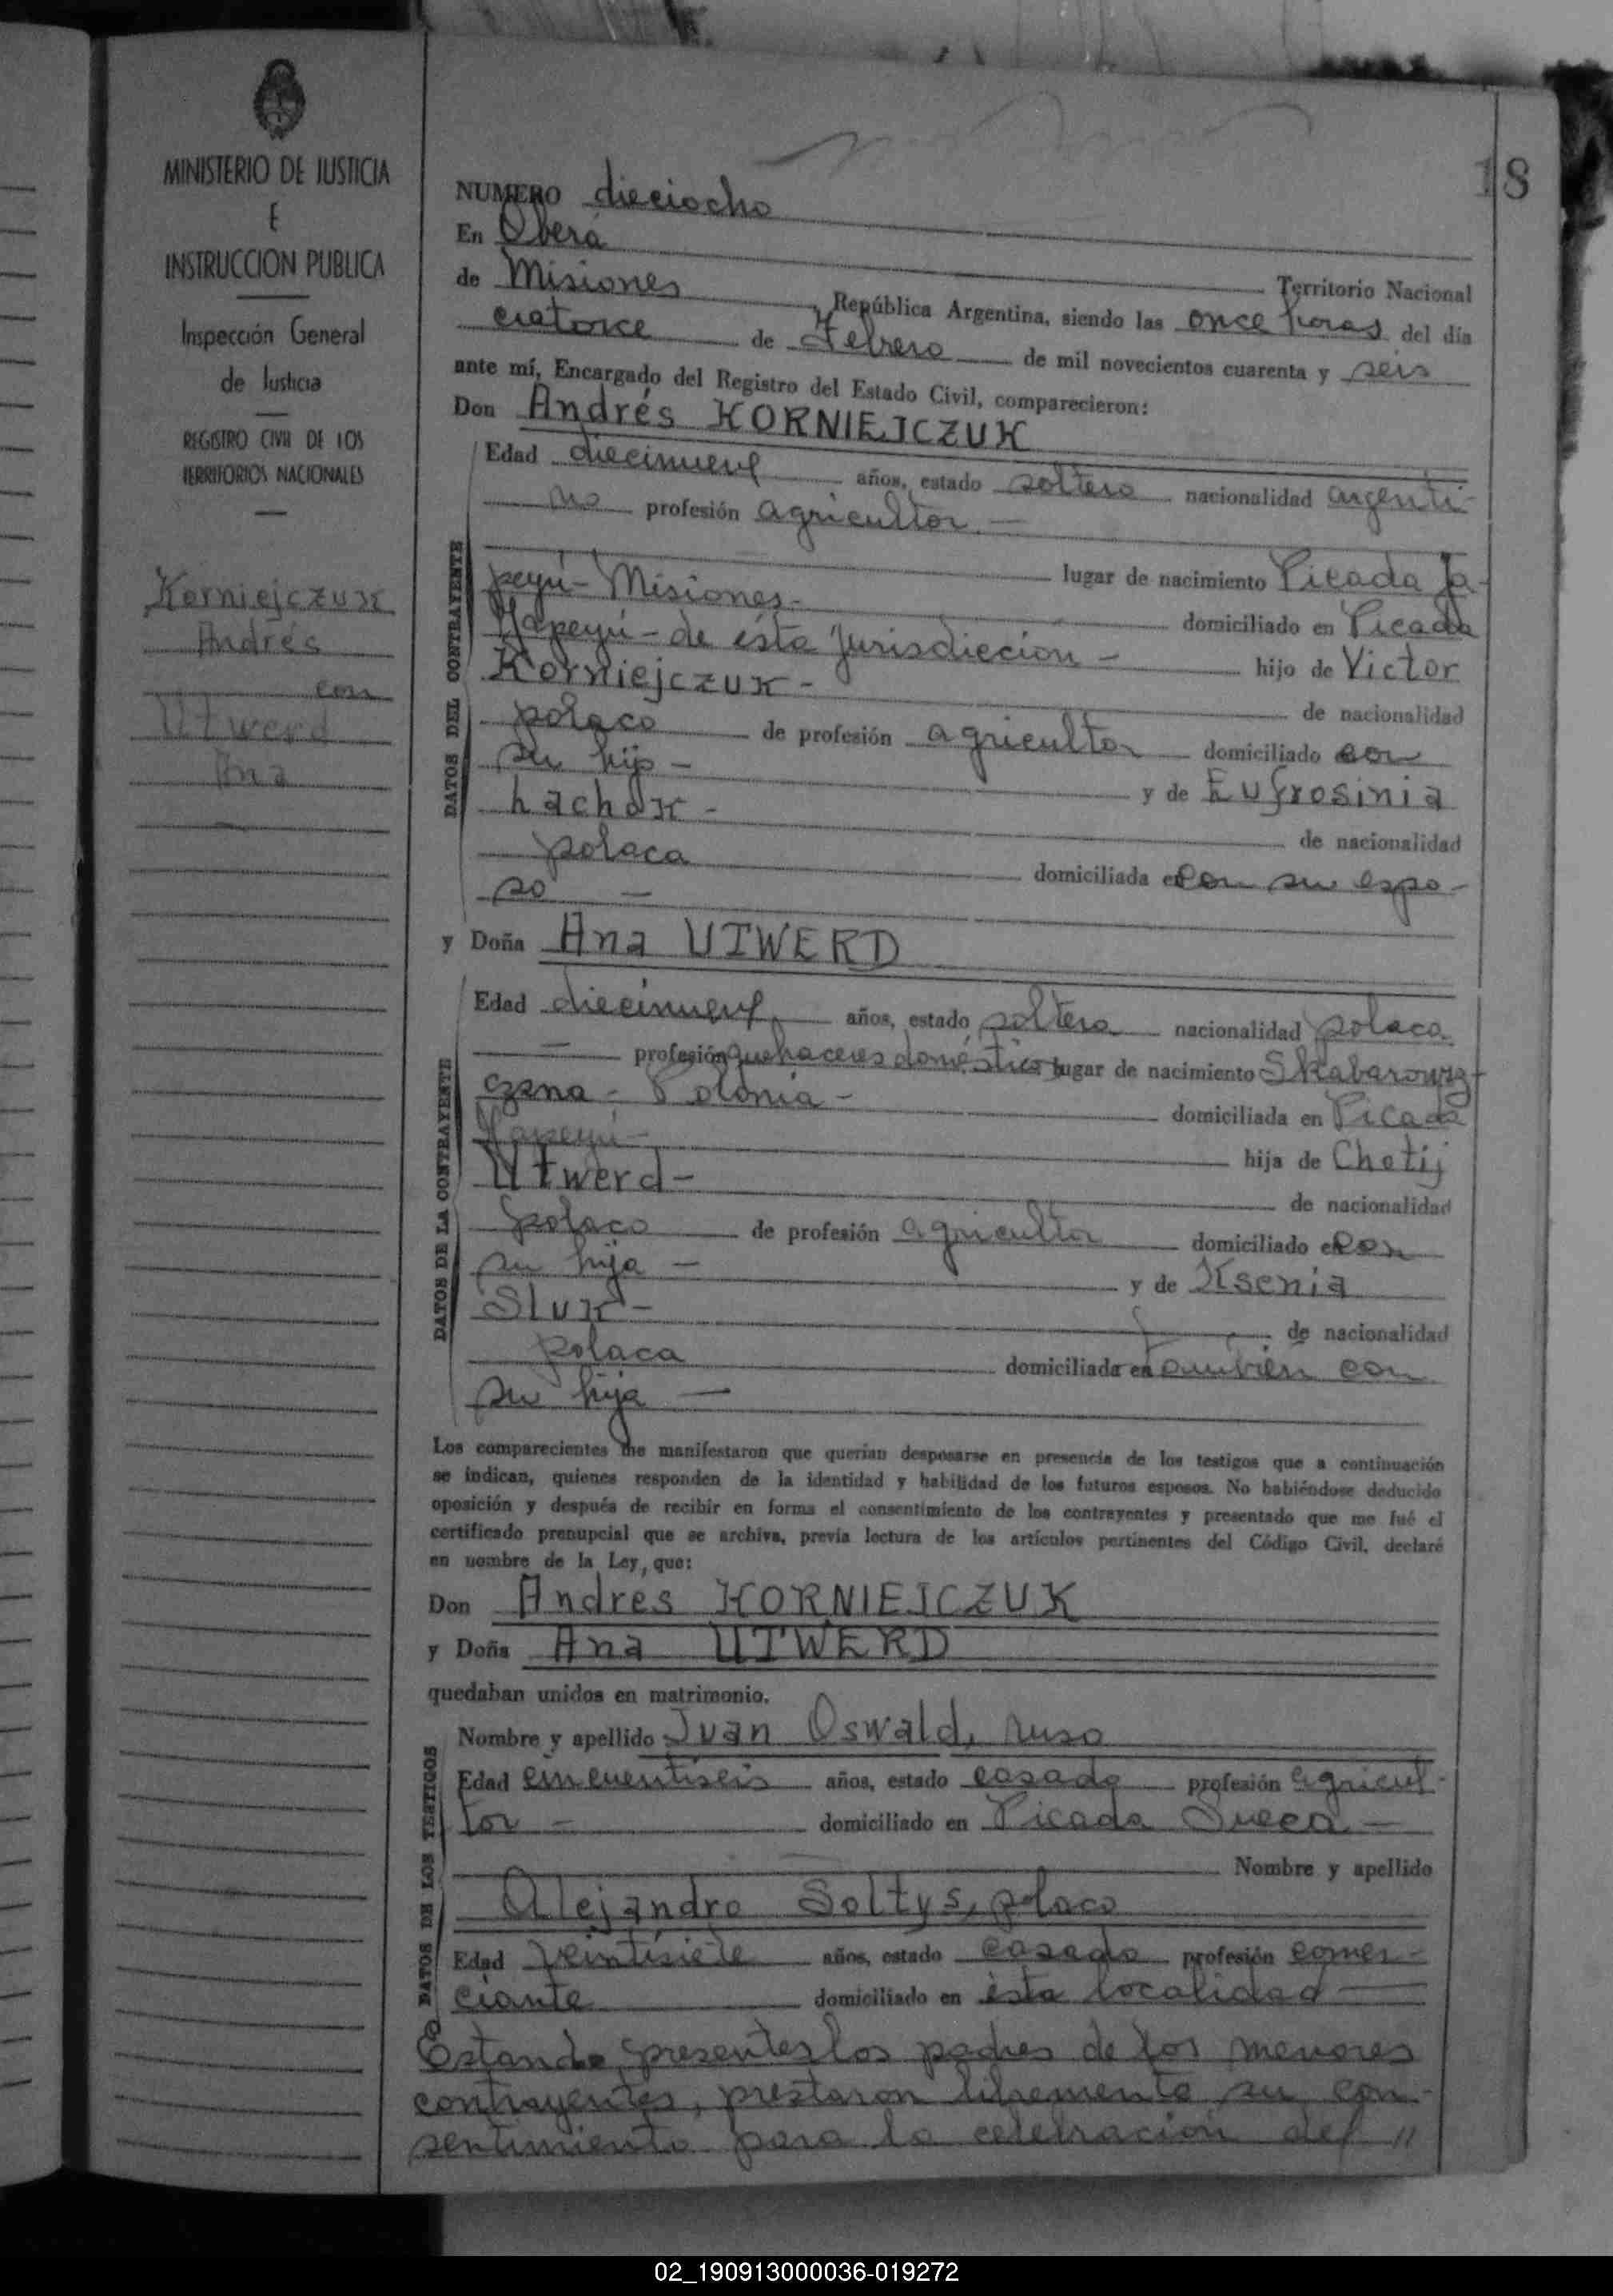 MINISTERIO DE JUSTICIA
E
INSTRUCCION PUBLICA
Inspección General
de Justicia
REGISTRO CIVIL DE LOS
TERRITORIOS NACIONALES
Korniejczuk
Andrés
con
Utwerd
Ana
18
NUMERO dieciocho
En Oberá
Territorio Nacional
de Misiones, República Argentina, siendo las once horas del día
catorce de Febrero de mil novecientos cuarenta y seis
ante mí, Encargado del Registro del Estado Civil, comparecieron:
Don Andrés KORNIEJCZUK
DATOS DEL CONTRAYENTE
Edad diecinueve años, estado soltero nacionalidad argenti-
no profesión agricultor -
lugar de nacimiento Picada Ja-
peyú - Misiones - domiciliado en Picada
Yapeyú - de ésta Jurisdiccion - hijo de Victor
Korniejczuk - de nacionalidad
polaco de profesión agricultor domiciliado con
su hijo - y de Eufrosinia
hachok - de nacionalidad
polaca domiciliada en con su espo-
so -
y Doña Ana UTWERD
DATOS DE LA CONTRAYENTE
Edad diecinueve años, estado soltera nacionalidad polaca
- profesión quehaceres domésticos lugar de nacimiento Skabarowz-
czna - Polonia - domiciliada en Picada
Yapeyú - hija de Chotij
Utwerd - de nacionalidad
polaco de profesión agricultor domiciliado en con
su hija - y de Ksenia
Sluk - de nacionalidad
polaca domiciliada en también con
su hija -
Los comparecientes me manifestaron que querían desposarse en presencia de los testigos que a continuación
se indican, quienes responden de la identidad y habilidad de los futuros esposos. No habiéndose deducido
oposición y después de recibir en forma el consentimiento de los contrayentes y presentado que me fué el
certificado prenupcial que se archiva, previa lectura de los artículos pertinentes del Código Civil, declaré
en nombre de la Ley, que:
Don Andres KORNIEJCZUK
y Doña Ana UTWERD
quedaban unidos en matrimonio.
DATOS DE LOS TESTIGOS
Nombre y apellido Juan Oswald, ruso
Edad cincuentiseis años, estado casado profesión agricul-
tor - domiciliado en Picada Sueca -
Nombre y apellido
Alejandro Soltys, polaco
Edad veintisiete años, estado casado profesión comer-
ciante domiciliado en ésta localidad
Estando presentes los padres de los menores
contrayentes, prestaron libremente su con-
sentimiento para la celebración del "
02_190913000036-019272